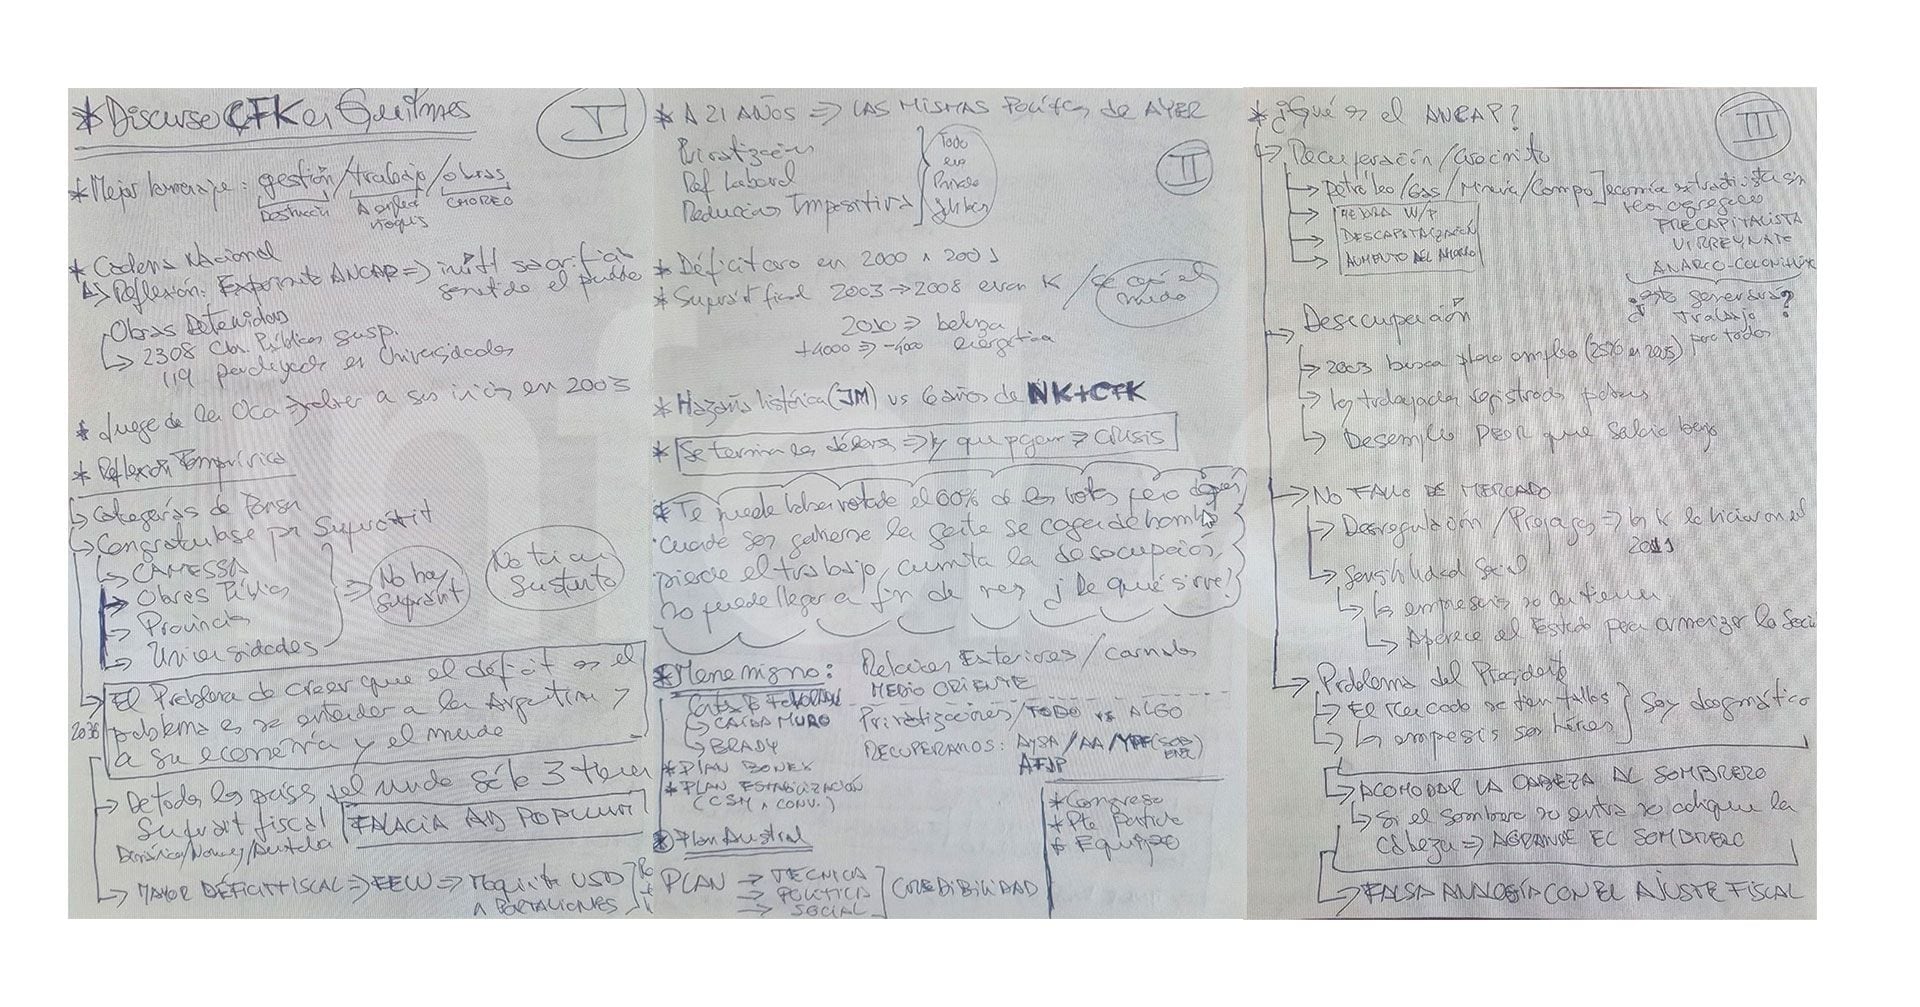 * Discurso CFK en Quilmes
I
* Mejor homenaje: gestión/trabajo/obras
Destrucción
CHOREO
* Cadena Nacional
↳ Reflexión: Experimento ANCAP ⇒ inútil sacrificio
sometido el pueblo
Obras Detenidas
↳ 2308 Obr. Públicas susp.
119 paralizadas en Universidades
* Juego de la Oca ⇒ volver a sus inicios en 2003
* Reflexión Empírica
↳ Categorías de Pensar
↳ Congratularse por Superávit
↳ CAMESSA
↳ Obras Públicas
↳ Provincias
↳ Universidades
⇒ No hay Superávit
No tiene Sustento
↳ El Problema de creer que el déficit es el
problema es no entender a la Argentina,
a su economía y el mundo
↳ De todos los países del mundo sólo 3 tienen
Superávit fiscal
FALACIA AD POPULUM
Dinamarca/Noruega/Australia
↳ MAYOR DÉFICIT FISCAL ⇒ EEUU ⇒ Maquinita USD
* A 21 AÑOS ⇒ LAS MISMAS Políticas de AYER
II
Privatización
Ref Laboral
Reducción Impositiva
Todo
era
* Déficit cero en 2000 y 2001
* Superávit fiscal 2003 → 2008 eran K / se cayó el
mundo
2010 ⇒ balanza
+4000 ⇒ -4000 energética
* Hazaña histórica (JM) vs 6 años de NK+CFK
* Se terminan los dólares ⇒ hay que pagar ⇒ CRISIS
* Te puede haber votado el 60% de los votos pero después
cuando sos gobierno la gente se caga de hambre
pierde el trabajo, aumenta la desocupación,
no puede llegar a fin de mes ¿De qué sirve?
* Menemismo: Relaciones Exteriores / carnales
MEDIO ORIENTE
↳ CAÍDA MURO
Privatizaciones / TODO vs ALGO
↳ BRADY
RECUPERAMOS: AYSA/AA/YPF
AFJP
* PLAN BONEX
* PLAN ESTABILIZACIÓN
(CONV.)
* Plan Austral
* Congreso
* Pte Partido
* Equipo
PLAN → TÉCNICA
→ POLÍTICA
→ SOCIAL
CREDIBILIDAD
* ¿Qué es el ANCAP?
III
↳ Recuperación / Crecimiento
↳ petróleo/Gas/Minería/Campo] economía extractivista sin
valor agregado
PRECAPITALISTA
VIRREYNATO
ANARCO-COLONIALISTA
↳ MEJORA W/P
↳ DESCAPITALIZACIÓN
↳ AUMENTO DEL AHORRO
¿esto generará
trabajo
para todos?
↳ Desocupación
↳ 2003 busca pleno empleo
↳ los trabajadores registrados pobres
↳ Desempleo PEOR que salario bajo
↳ NO FALLO DE MERCADO
↳ Desregulación / Prepagas ⇒ los K lo hicieron en el
2011
↳ Sensibilidad Social
↳ las empresas no la tienen
↳ Aparece el Estado para
↳ Problema del Presidente
↳ El mercado no tiene fallos
↳ las empresas son héroes
Soy dogmático
↳ ACOMODAR LA CABEZA AL SOMBRERO
↳ Si el sombrero no entra no achique la
cabeza ⇒ AGRANDE EL SOMBRERO
↳ FALSA ANALOGÍA CON EL AJUSTE FISCAL